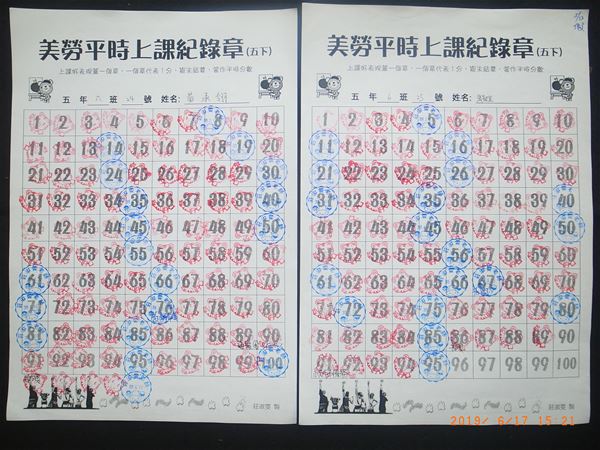 美勞平時上課紀錄章(五下)
五年六班24號 姓名:
1 2 3 4 5 6 7 8 9 10
11 12 13 14 15 16 17 18 19 20
21 22 23 24 25 26 27 28 29 30
31 32 33 34 35 36 37 38 39 40
41 42 43 44 45 46 47 48 49 50
51 52 53 54 55 56 57 58 59 60
61 62 63 64 65 66 67 68 69 70
71 72 73 74 75 76 77 78 79 80
81 82 83 84 85 86 87 88 89 90
91 92 93 94 95 96 97 98 99 100
莊淑雯 製
美勞平時上課紀錄章(五下)
五年6班 號 姓名:
1 2 3 4 5 6 7 8 9 10
11 12 13 14 15 16 17 18 19 20
21 22 23 24 25 26 27 28 29 30
31 32 33 34 35 36 37 38 39 40
41 42 43 44 45 46 47 48 49 50
51 52 53 54 55 56 57 58 59 60
61 62 63 64 65 66 67 68 69 70
71 72 73 74 75 76 77 78 79 80
81 82 83 84 85 86 87 88 89 90
91 92 93 94 95 96 97 98 99 100
莊淑雯 製
2019/ 6/17 15:21